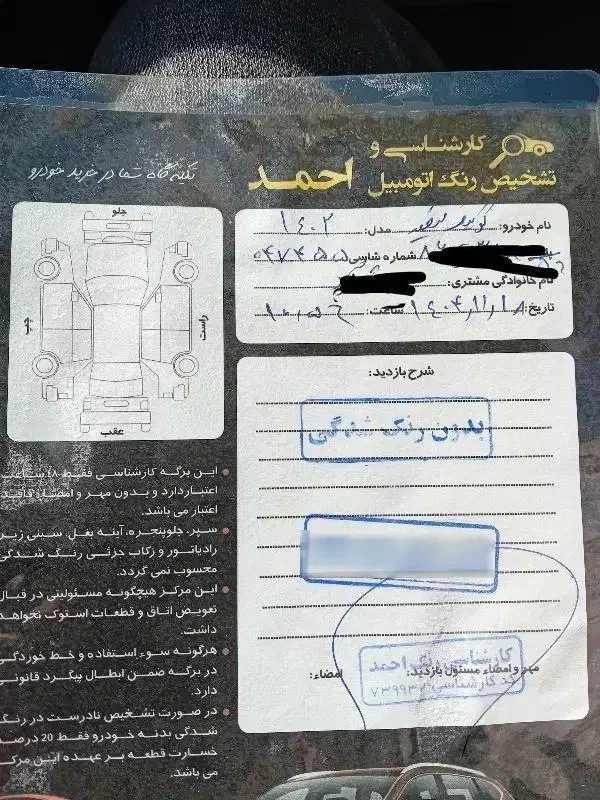 کارشناسی و
تشخیص رنگ اتومبیل احمد
تکیه گاه شما در خرید خودرو
نام خودرو: مدل: ۱۴۰۲
شماره شاسی:
نام خانوادگی مشتری:
تاریخ: ۱۴۰۴,۱۱,۱۸ ساعت:
جلو
چپ
راست
عقب
شرح بازدید:
بدون رنگ شدگی
مهر و امضاء مسئول بازدید: امضاء:
کارشناسی رنگ احمد
کد کارشناسی
این برگه کارشناسی فقط ۴۸ ساعت
اعتبار دارد و بدون مهر و امضاء فاقد
اعتبار می باشد.
سپر، جلوپنجره، آینه بغل، سینی زیر
رادیاتور و رکاب جزئی رنگ شدگی
محسوب نمی گردد.
این مرکز هیچگونه مسئولیتی در قبال
تعویض اتاق و قطعات استوک نخواهد
داشت.
هرگونه سوء استفاده و خط خوردگی
در برگه ضمن ابطال پیگرد قانونی
دارد.
در صورت تشخیص نادرست در رنگ
شدگی بدنه خودرو فقط 20 درصد
خسارت قطعه بر عهده این مرکز
می باشد.